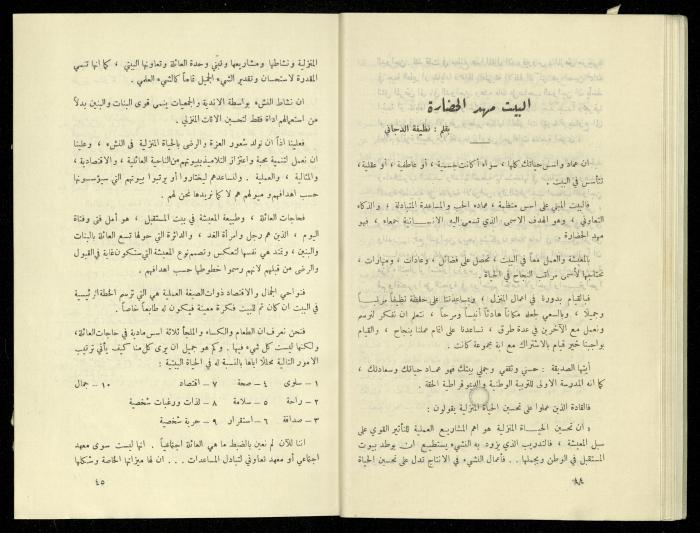 البيت مهد الحضارة
بقلم : نظيفة الدجاني
ان عماد واسس حياتك كلها ، سواء أكانت جسمية ، أو عاطفية ، أو عقلية ،
تتأسس في البيت .
فالبيت المبني على اسس منظمة ، عماده الحب والمساعدة المتبادلة ، والذكاء
التعاوني ، وهو الهدف الاسمى الذي تسعى اليه الانسانية جمعاء ، فهو
مهد الحضارة .
بالمعيشة والعمل معاً في البيت ، تحصل على فضائل ، وعادات ، ومهارات ،
تحتاجها لأسمى مراتب النجاح في الحياة .
فبالقيام بدورنا في اعمال المنزل ، وبمساعدتنا على حفظه نظيفاً مرتباً
وجميلاً ، وبالسعي لجعله مكاناً هادئاً أنيساً ومرحاً ، نتعلم ان نفكر لنرسم
ونعمل مع الآخرين في عدة طرق ، تساعدنا على اتمام عملنا بنجاح ، والقيام
بواجبنا خير قيام بالاشتراك مع اية مجموعة كانت .
أيتها الصديقة : حسني وثقفي وجملي بيتك فهو عماد حياتك وسعادتك ،
كما انه المدرسة الاولى للتربية الوطنية والديموقراطية الحقة .
فالقادة الذين عملوا على تحسين الحياة المنزلية يقولون :
« ان تحسين الحياة المنزلية هو اهم المشاريع العملية للتأثير القوي على
سبل المعيشة ، فالتدريب الذي يزود به النشء يستطيع ان يوطد بيوت
المستقبل في الوطن ويجملها . فأعمال النشء في الانتاج تدل على تحسين الحياة
٤٤
المنزلية ونشاطها ومشاريعها وتبني وحدة العائلة وتعاونها البيتي ، كما انها تنمي
المقدرة لاستحسان وتقدير الشيء الجميل تماماً كالشيء العلمي .
ان نشاط النشء بواسطة الاندية والجمعيات ينمي قوى البنات والبنين بدلاً
من استعمالهم اداة فقط لتحسين الاثاث المنزلي .
فعلينا اذاً ان نولد شعور العزة والرضى بالحياة المنزلية في النشء ، وعلينا
ان نعمل لتنمية محبة واعتزاز التلاميذ ببيوتهم من الناحية العائلية ، والاقتصادية ،
والمثالية ، والعملية . ولنساعدهم ليختاروا أو يرتبوا بيوتهم التي سيؤسسونها
حسب اهدافهم وميولهم هم لا كما نريدها نحن لهم .
فحاجات العائلة ، وطبيعة المعيشة في بيت المستقبل ، هو أمل فتى وفتاة
اليوم ، الذين هم رجل وامرأة الغد ، والدائرة التي حولها تسع العائلة بالبنات
والبنين ، وتمتد هي نفسها لتعكس وتصمم نوع المعيشة التي ستكون غاية في القبول
والرضى من قبلهم لانهم رسموا خطوطها حسب اهدافهم .
فنواحي الجمال والاقتصاد ذوات الصبغة العملية هي التي ترسم الخطة الرئيسية
في البيت ان كان ثم للبيت فكرة معينة فيكون له طابعاً خاصاً .
فنحن نعرف ان الطعام والكساء والملجأ ثلاثة اسس مادية في حاجات العائلة ،
ولكنها ليست كل شيء فيها . وكم هو جميل ان يرى كل منا كيف يأتي ترتيب
الامور التالية محللاً اياها بالنسبة له في الحياة البيتية :
١ – سلوى ٤ – صحة ٧ – اقتصاد ١٠ – جمال
٢ – راحة ٥ – سلامة ٨ – لذات ورغبات شخصية
٣ – صداقة ٦ – استقرار ٩ – حرية شخصية .
اننا للآن لم نعين بالضبط ما هي العائلة اجتماعياً . انها ليست سوى معهد
اجتماعي أو معهد تعاوني لتبادل المساعدات . . . ان لها ميزاتها الخاصة وشكلها
٤٥